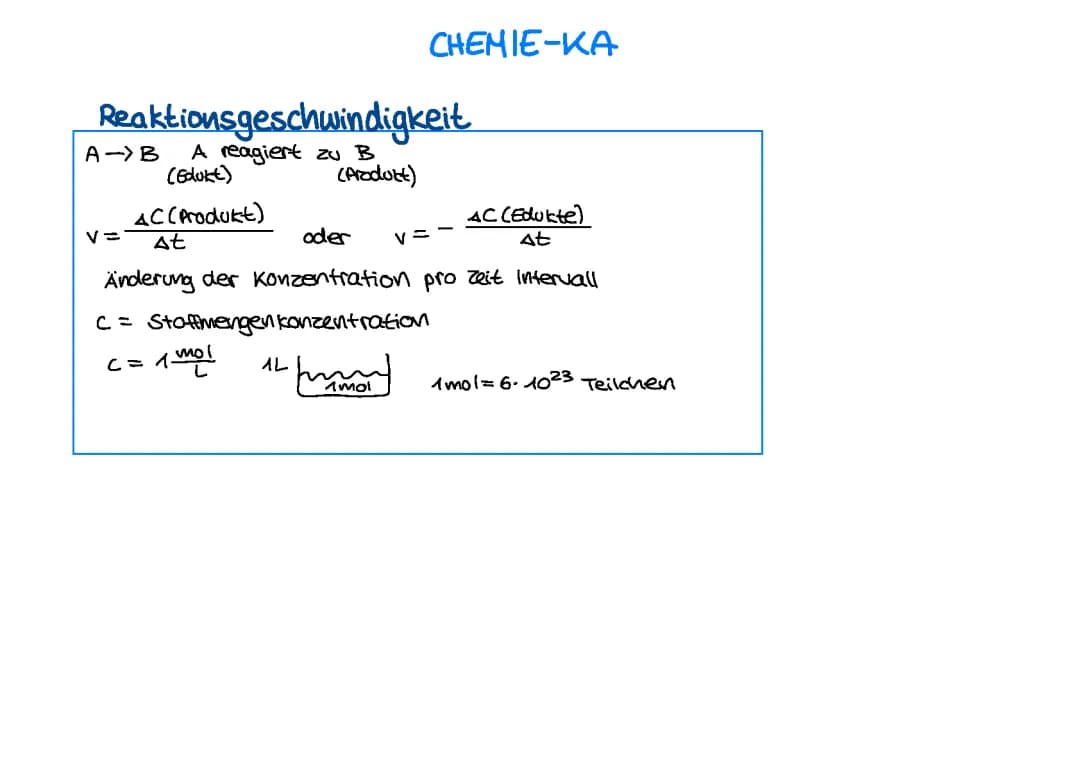 CHEMIE-KA
Reaktionsgeschwindigkeit
A → B A reagiert zu B
(Edukt) (Produkt)
v = ΔC(Produkt)/Δt oder v = - ΔC(Edukte)/Δt
Änderung der Konzentration pro Zeit Intervall
C = Stoffmengenkonzentration
C = 1 mol/L 1L 1mol 1mol = 6 · 10²³ Teilchen